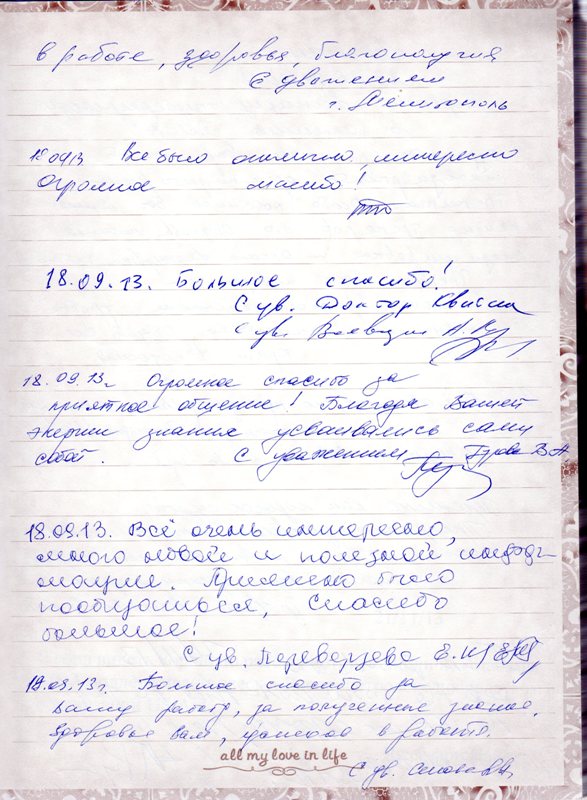 в работе, здоровья, благополучия
С уважением
г. Мелитополь
18.09.13 Все было отлично, интересно
Огромное спасибо!
18.09.13. Большое спасибо!
С ув. Доктор
С ув.
18.09.13г Огромное спасибо за
приятное общение! Благодаря Вашей
энергии знания усваивались сами
собой. С уважением В А
18.09.13. Всё очень интересно,
много новой и полезной инфор-
мации. Приятно было
пообщаться, Спасибо
большое!
С ув. Переверзева Е.Н.
19.09.13г. Большое спасибо за
вашу работу, за полученные знания.
Здоровья Вам, успехов в работе.
all my love in life
С ув.